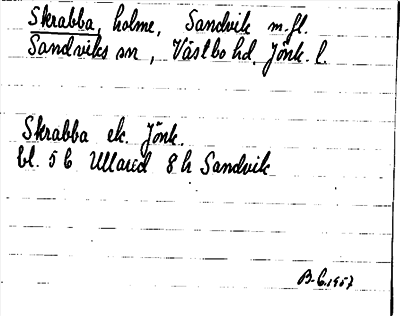 Skrabba, holme, Sandvik m.fl.
Sandviks sn, Västbo hd. Jönk. l.
Skrabba ek. Jönk.
bl. 5 b Ullared 8 h Sandvik
B.G. 1957